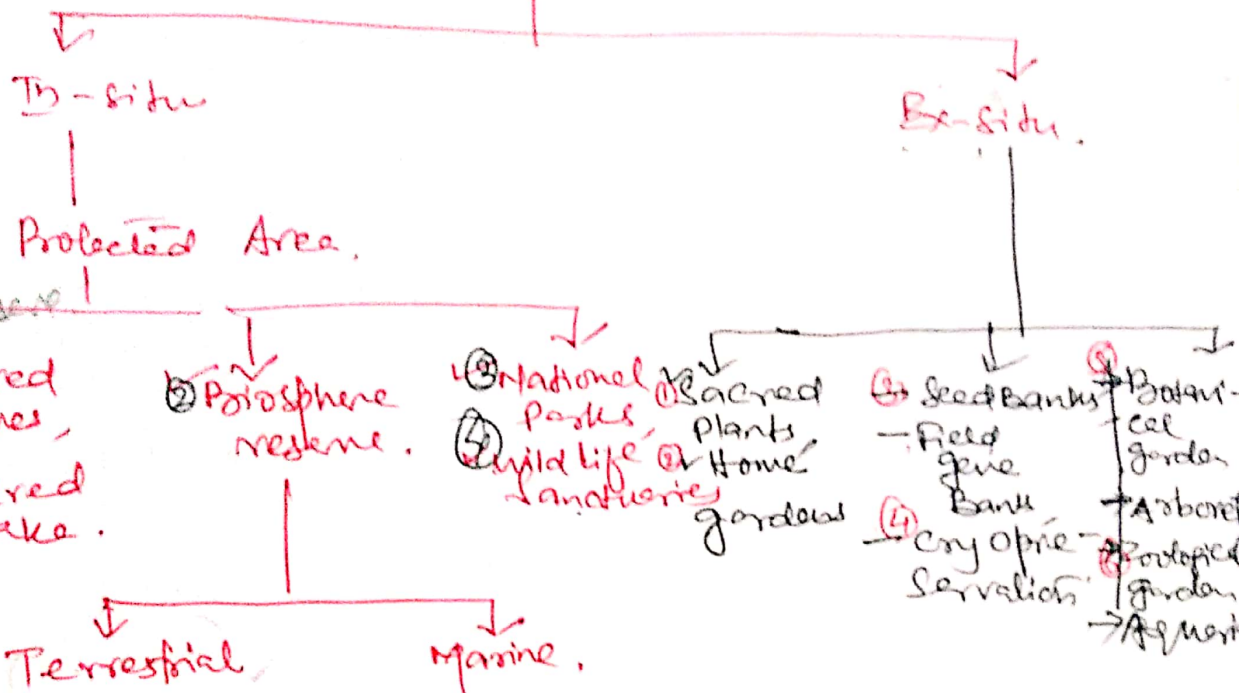 In-situ
Ex-situ.
Protected Area.
② Biosphere
reserve.
③ National
Parks,
④ Wild life
Sanctuaries
① Sacred
plants.
② Home
gardens
③ Seed Banks
- Field
gene
Bank
④
- Cryopre-
servation
⑤
→ Botani-
cal
garden
→ Arboret
⑥ Zoological
garden
→ Aquari
red
lake.
Terrestrial
Marine.